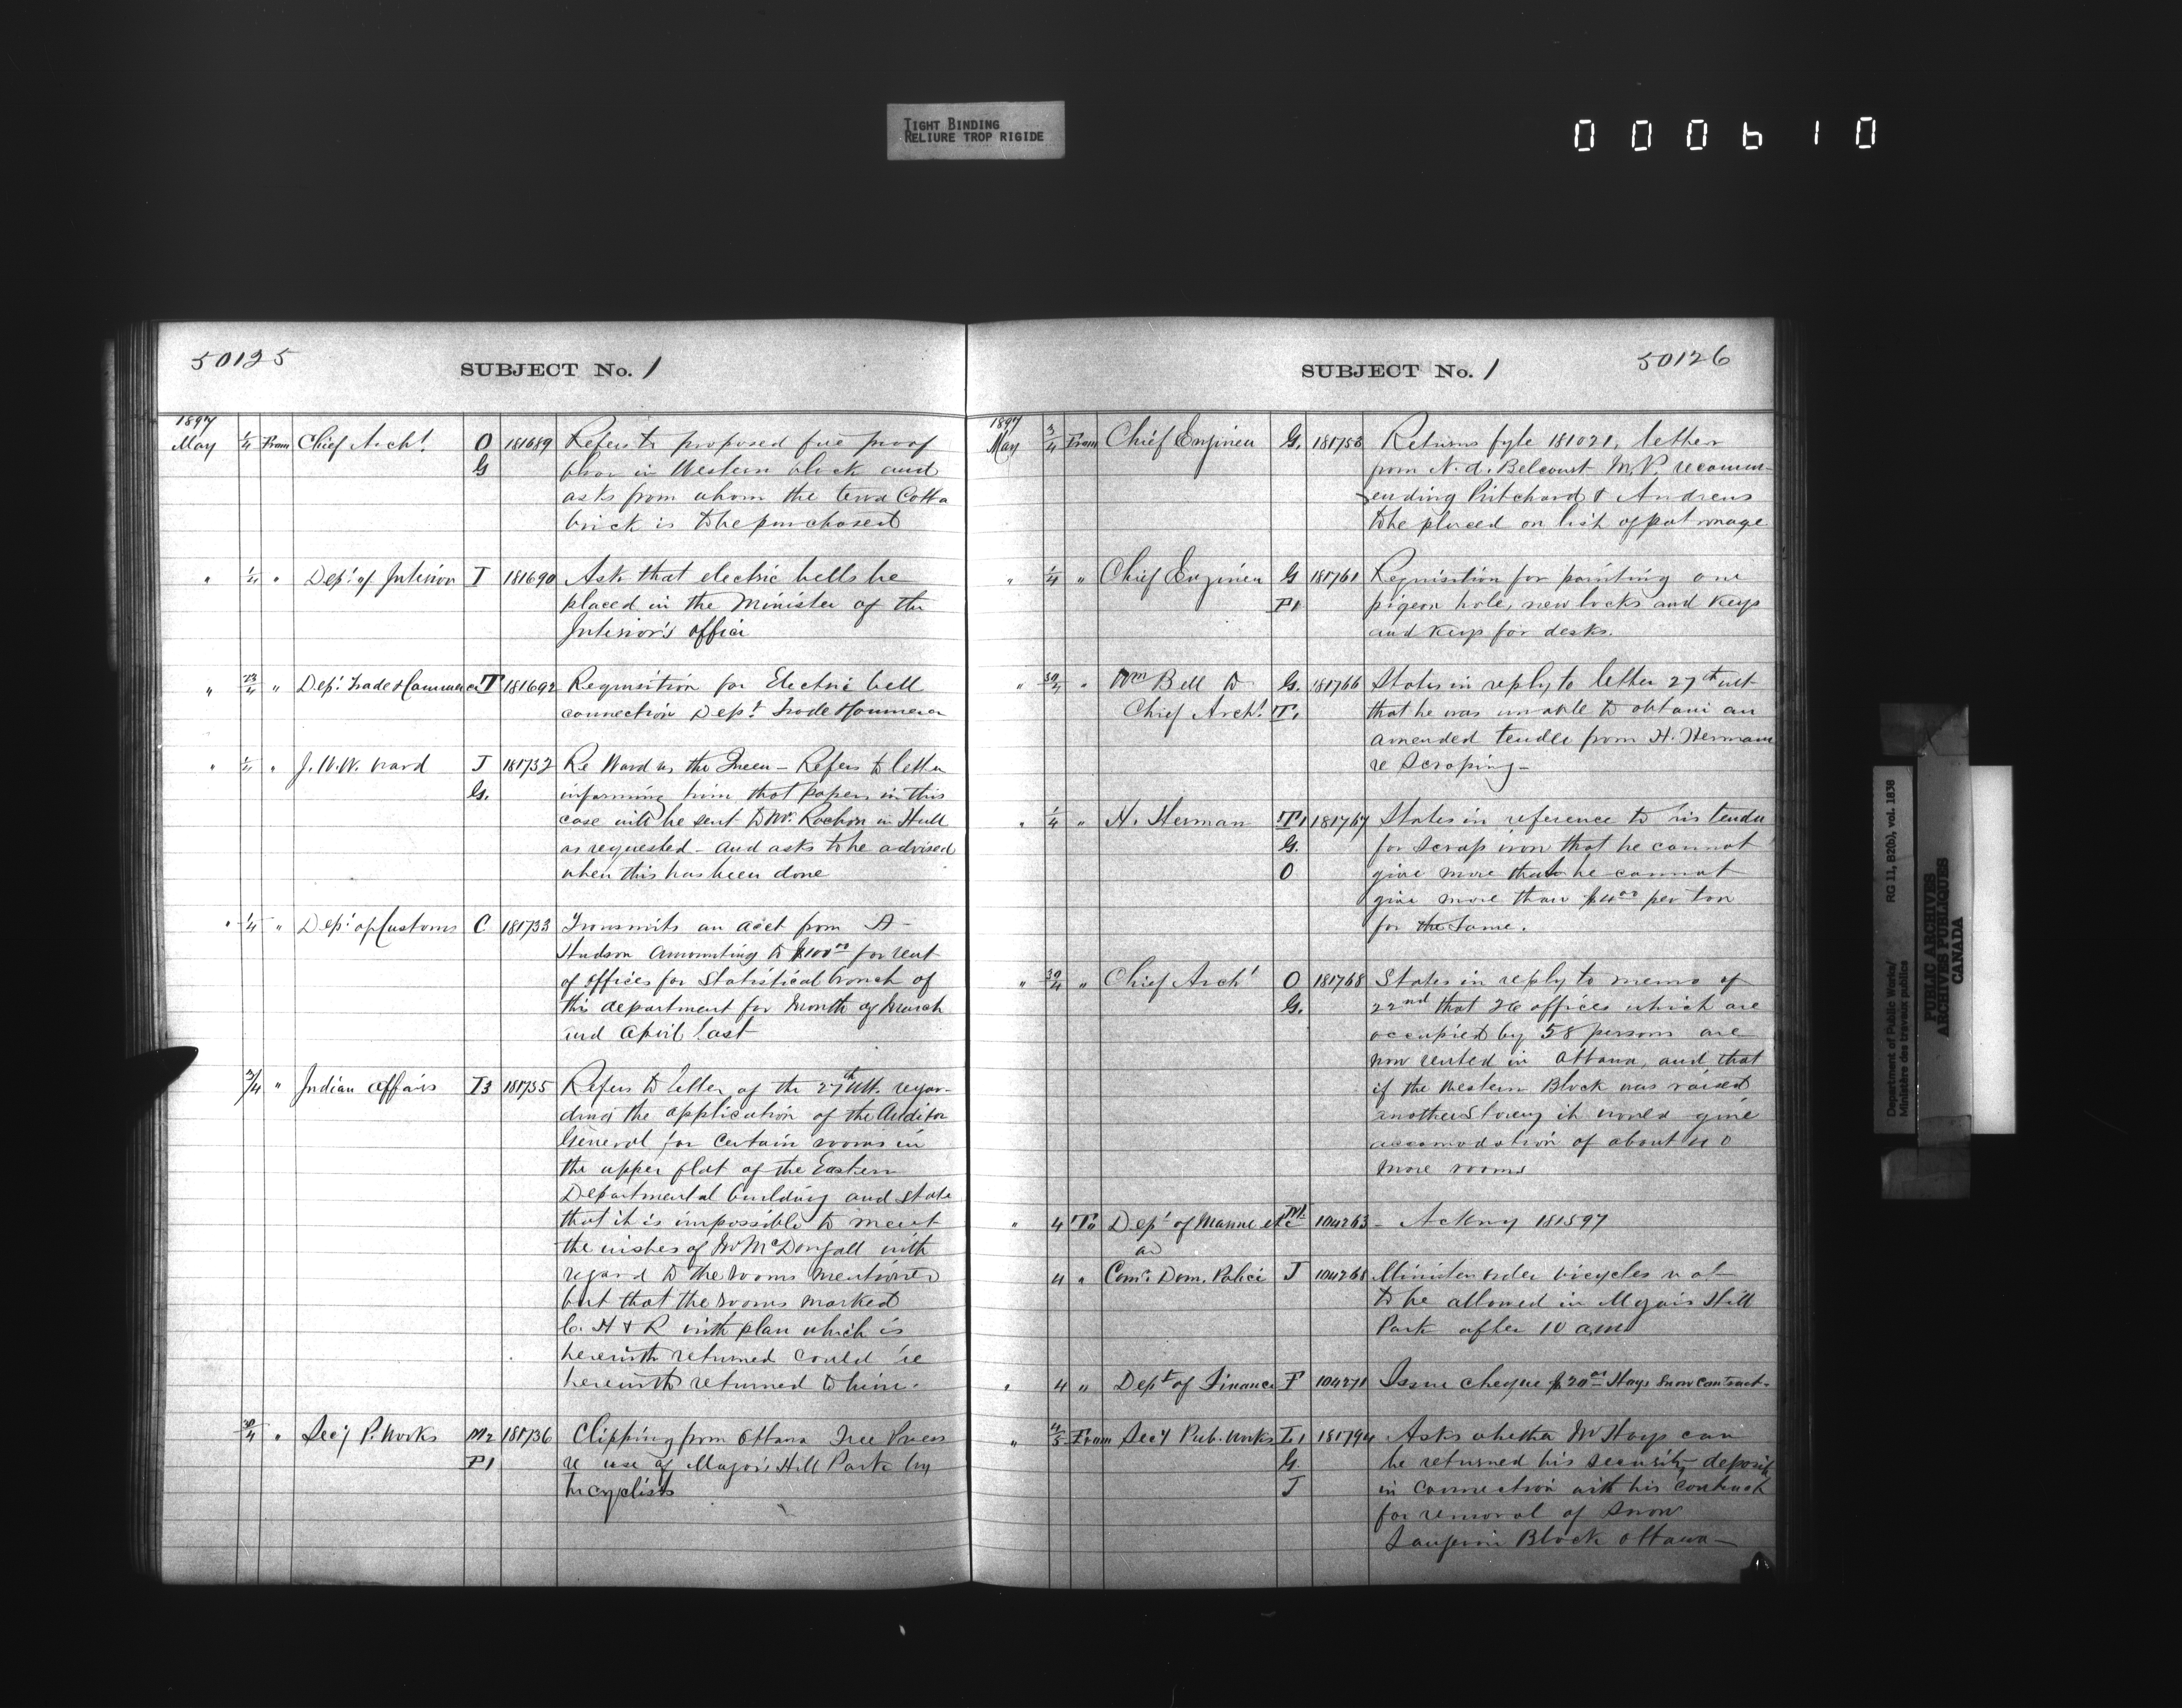 TIGHT BINDING
RELIURE TROP RIGIDE
000610
50125
SUBJECT No. 1
1897
May 1/4 From Chief Archt. O 181689 Refers to proposed fire proof
G floor in Western block and
asks from whom the terra Cotta
brick is to be purchased
" 1/4 " Dept. of Interior I 181690 Ask that electric bells be
placed in the Minister of the
Interior's office
" 23/4 " Dept. Trade & Commerce T 181692 Requisition for Electric bell
connection Dept. Trade & Commerce
" 1/4 " J. W. W. Ward J 181732 Re Ward vs the Queen - Refers to letter
G. informing him that papers in this
case will be sent to Mr. Rochon in Hull
as requested - and asks to be advised
when this has been done
" 1/4 " Dept. of Customs C 181733 Transmits an acct from A
Hudson amounting to $100.00 for rent
of offices for Statistical branch of
this department for Month of March
and April last
3/4 " Indian Affairs I3 181735 Refers to letter of the 27th ult. regar-
ding the application of the Auditor
General for certain rooms in
the upper flat of the Eastern
Departmental building and state
that it is impossible to meet
the wishes of Mr McDougall with
regard to the rooms mentioned
but that the rooms marked
C. H & R with plan which is
herewith returned could be
herewith returned to him.
30/4 " Secy P. Works M2 181736 Clipping from Ottawa Free Press
P1 re use of Major's Hill Park by
bicyclists
SUBJECT No. 1
50126
1897
May 3/4 From Chief Engineer G. 181753 Returns fyle 181021, letter
from N. A. Belcourt M.P. recomm-
ending Pritchard & Andrews
to be placed on list of patronage
" 1/4 " Chief Engineer G 181761 Requisition for painting one
P1 pigeon hole, new locks and keys
and keys for desks.
" 30/4 " Wm Bell to G. 181766 States in reply to letter 27th ult
Chief Archt. T. that he was unable to obtain an
amended tender from H. Herman
re Scraping -
" 1/4 " H. Herman T1 181767 States in reference to his tender
G. for Scrap iron that he cannot
O give more than he cannot
give more than $4.00 per ton
for the same.
" 30/4 " Chief Archt O 181768 States in reply to memo of
G. 22nd that 26 offices which are
occupied by 58 persons are
now rented in Ottawa, and that
if the Western Block was raised
another storey it would give
accomodation of about 40
more rooms
" 4 To Dept of Marine etc M. 104263 - Ackng 181597
4 " Comr. Dom. Police J 104268 Minister order bicycles not
to be allowed in Majors Hill
Park after 10 a.m
" 4 " Dept of Finance F 104271 Issue cheque $20.00 Hays Snow contract.
" 4/5 From Secy Pub. Works L1 181794 Asks whether Mr Hays can
G. be returned his security deposit
J in connection with his contract
for removal of Snow
Langevin Block Ottawa -
Department of Public Works/
Ministère des travaux publics
RG 11, B2(b), vol. 1838
PUBLIC ARCHIVES
ARCHIVES PUBLIQUES
CANADA